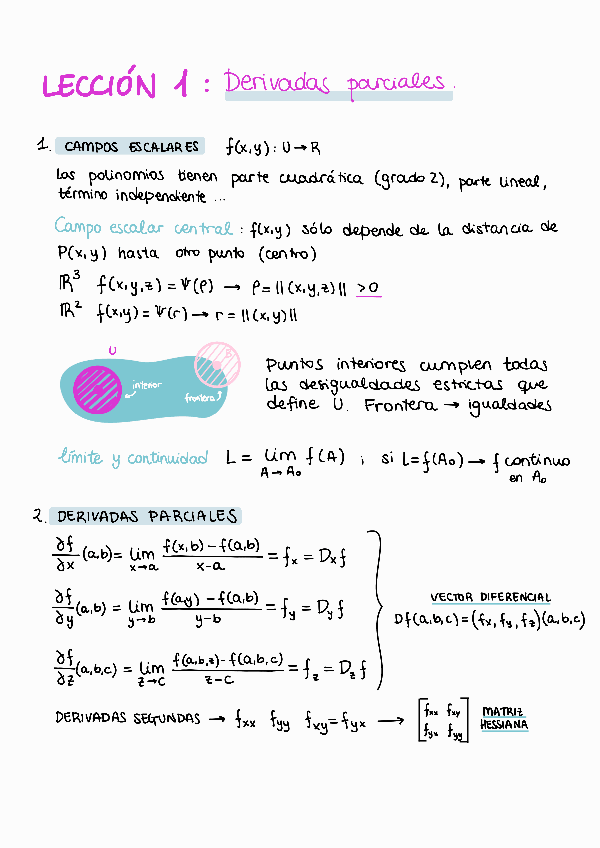 LECCIÓN 1: Derivadas parciales.
1. CAMPOS ESCALARES f(x,y): U→R
Los polinomios tienen parte cuadrática (grado 2), parte lineal,
término independiente ...
Campo escalar central: f(x,y) sólo depende de la distancia de
P(x,y) hasta otro punto (centro)
ℝ³ f(x,y,z) = Ψ(ρ) → ρ = ||(x,y,z)|| >0
ℝ² f(x,y) = Ψ(r) → r = ||(x,y)||
U
interior
frontera
Puntos interiores cumplen todas
las desigualdades estrictas que
define U. Frontera → igualdades
límite y continuidad L = lim f(A) ; si L=f(A₀) → f continuo
A→A₀ en A₀
2. DERIVADAS PARCIALES
∂f/∂x (a,b) = lim x→a (f(x,b)-f(a,b))/(x-a) = fₓ = Dₓf
∂f/∂y (a,b) = lim y→b (f(a,y)-f(a,b))/(y-b) = f_y = D_y f
∂f/∂z (a,b,c) = lim z→c (f(a,b,z)-f(a,b,c))/(z-c) = f_z = D_z f
VECTOR DIFERENCIAL
Df(a,b,c)=(fₓ, f_y, f_z)(a,b,c)
DERIVADAS SEGUNDAS → fₓₓ f_yy f_xy = f_yx → [fₓₓ f_xy
f_yx f_yy] MATRIZ
HESSIANA